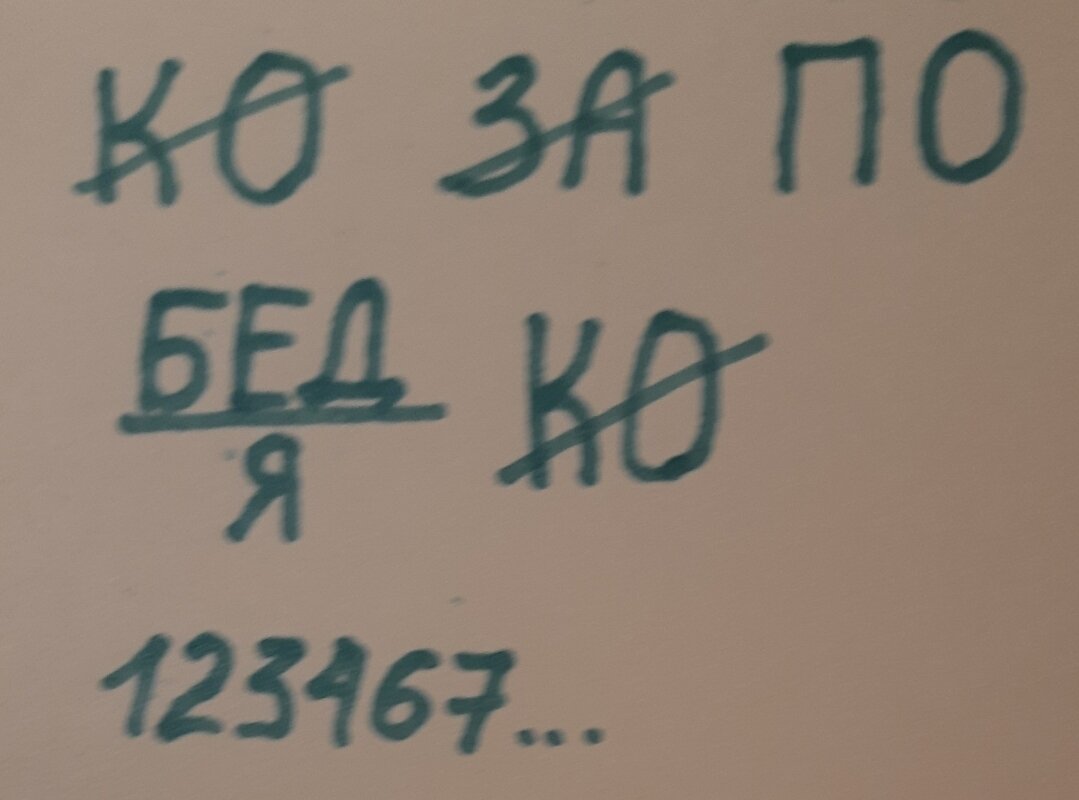 КО ЗА ПО
БЕД КО
Я
123467...